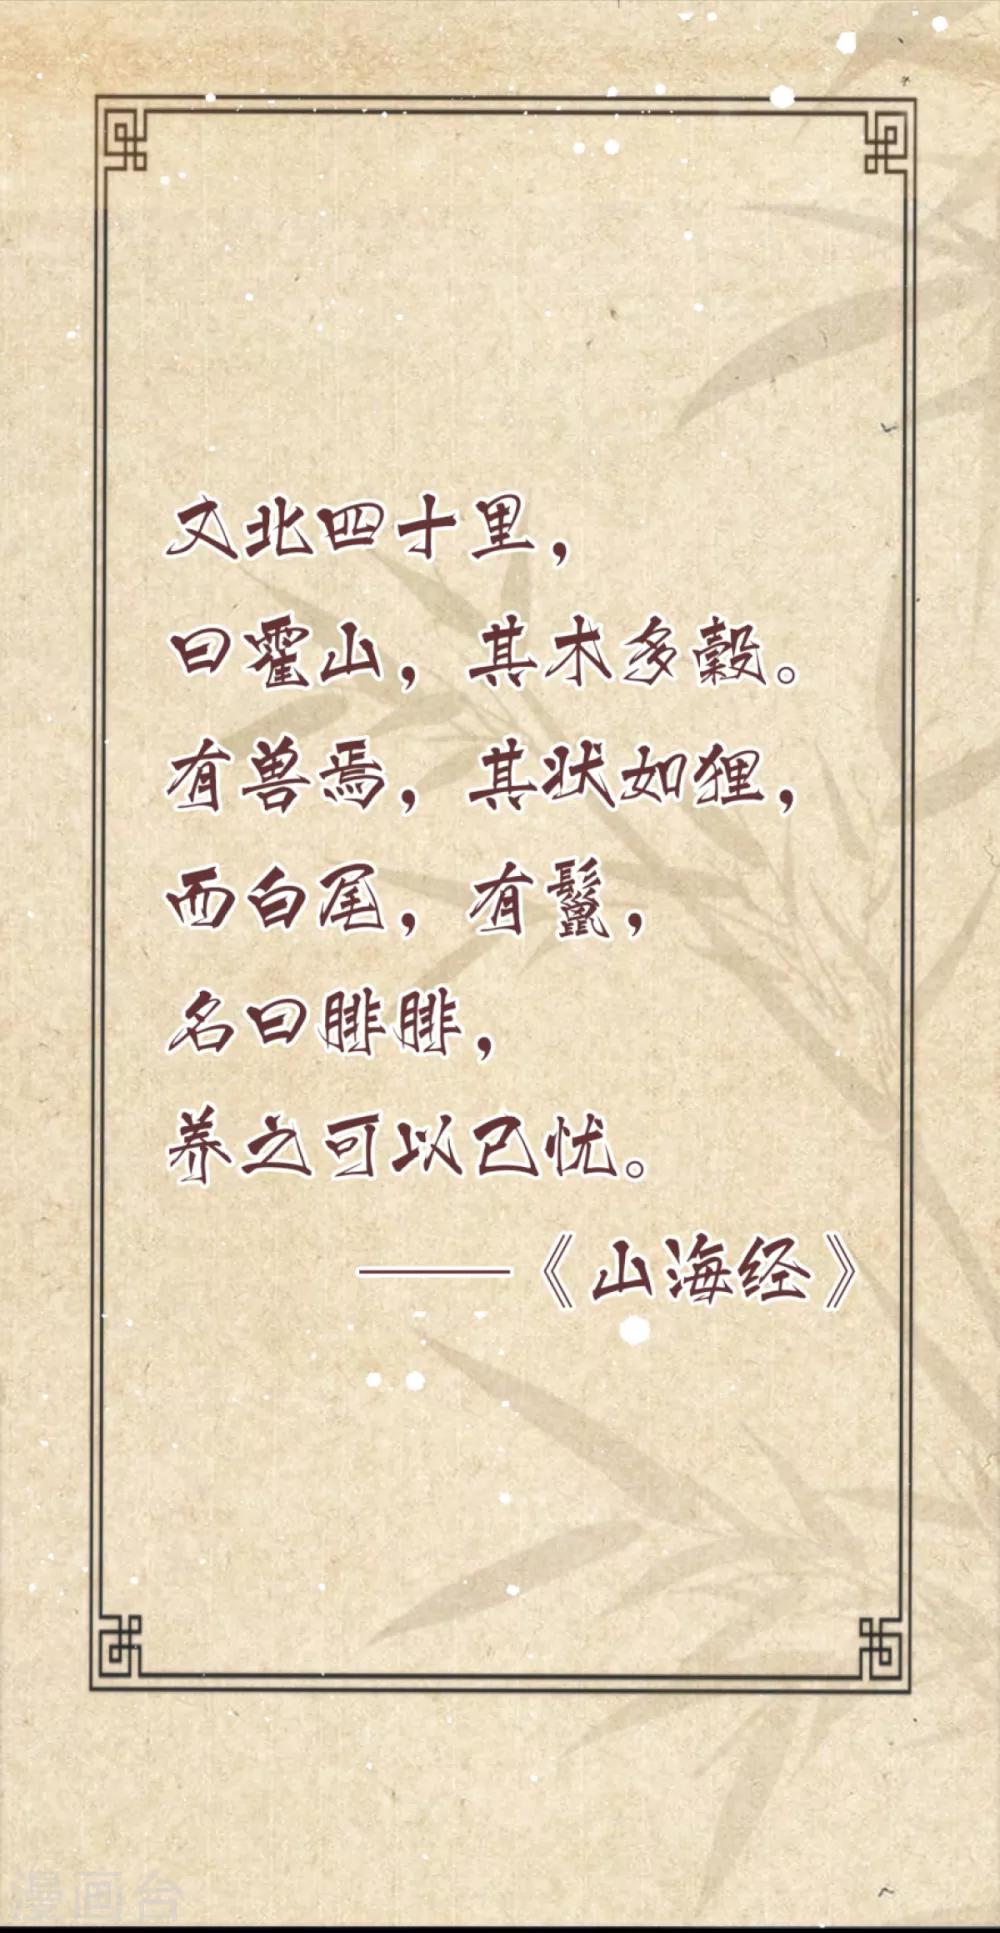 又北四十里，
曰霍山，其木多榖。
有兽焉，其状如狸，
而白尾，有鬣，
名曰腓腓，
养之可以已忧。
——《山海经》
漫画台